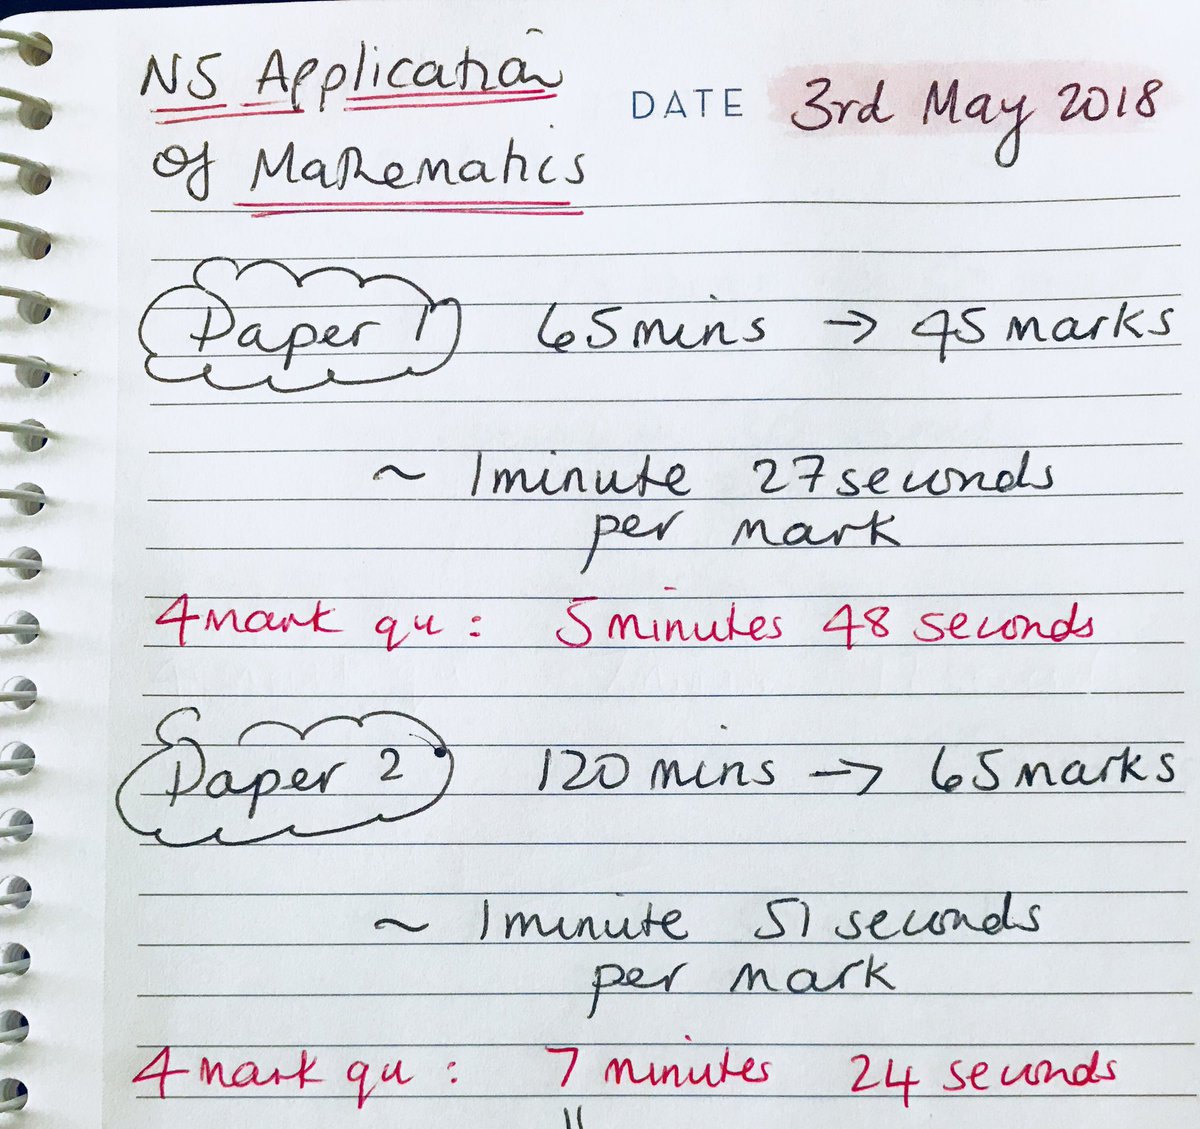 N5 Application
DATE 3rd May 2018
of Mathematics
Paper 1 65 mins → 45 marks
~ 1 minute 27 seconds
per mark
4 mark qu : 5 minutes 48 seconds
Paper 2 120 mins → 65 marks
~ 1 minute 51 seconds
per mark
4 mark qu : 7 minutes 24 seconds